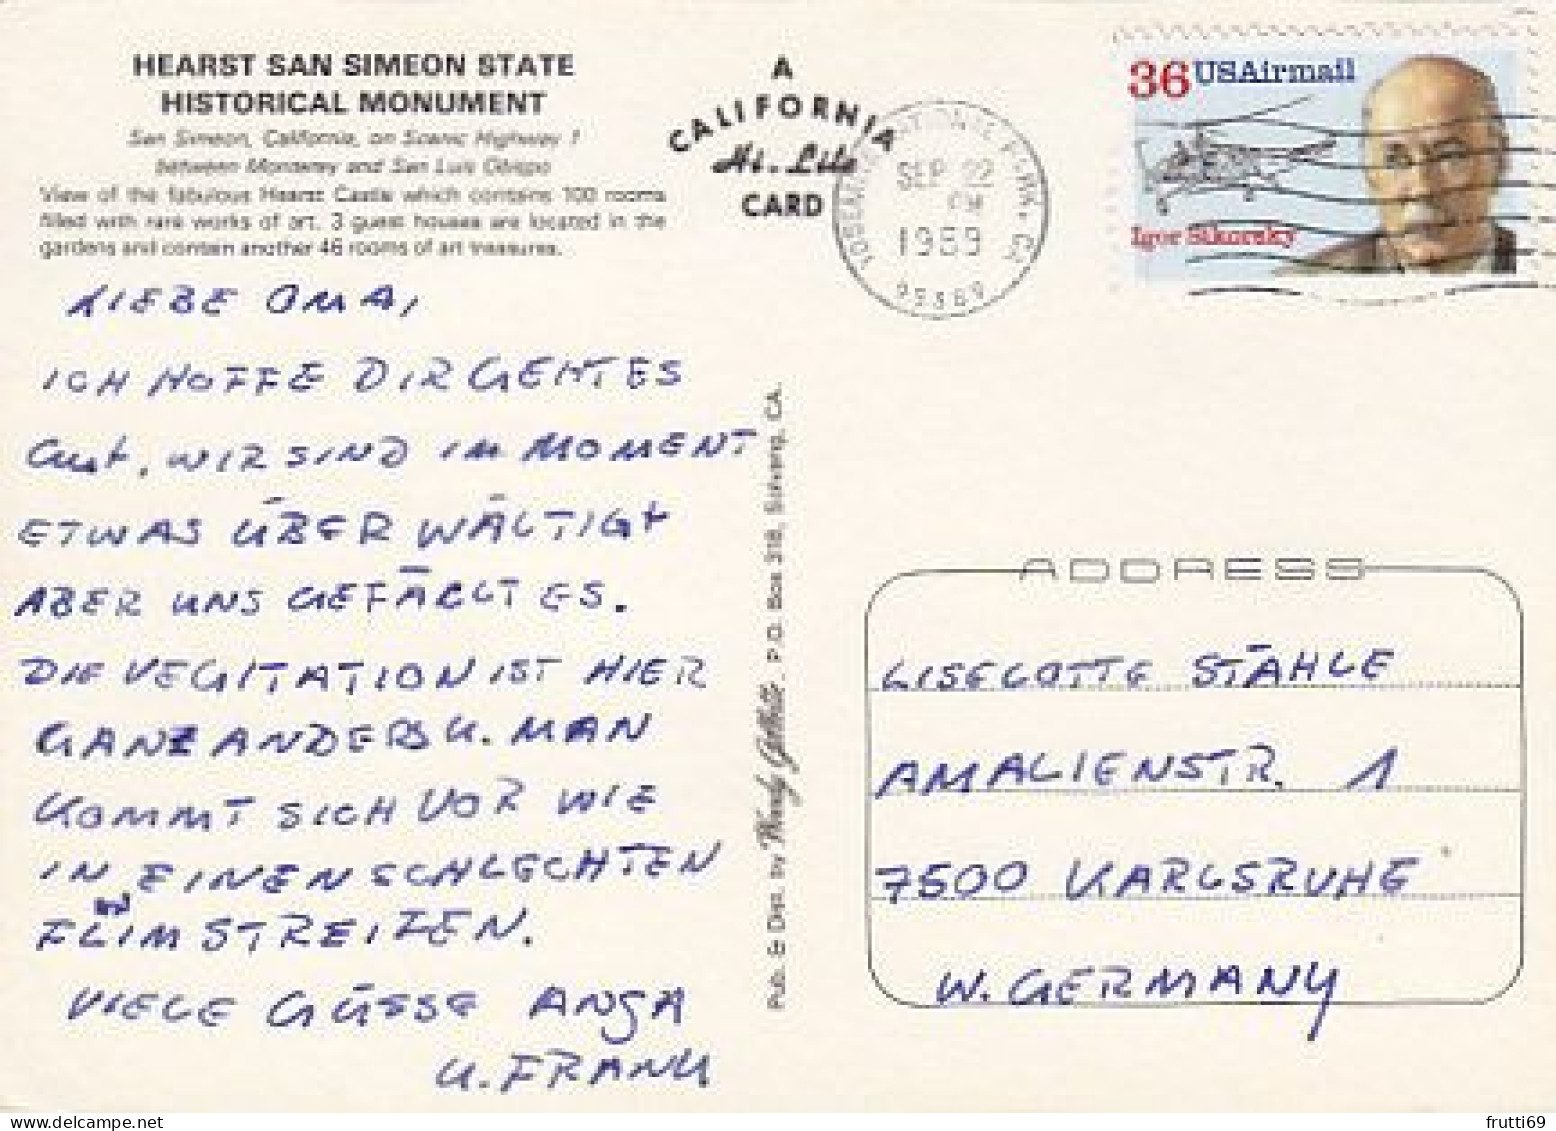 HEARST SAN SIMEON STATE
HISTORICAL MONUMENT
San Simeon, California, on Scenic Highway 1
between Monterey and San Luis Obispo
View of the fabulous Hearst Castle which contains 100 rooms
filled with rare works of art. 3 guest houses are located in the
gardens and contain another 46 rooms of art treasures.
A
CALIFORNIA
Hi-Lite
CARD
YOSEMITE NATIONAL PARK, CA
SEP 22
PM
1989
95389
36 USAirmail
Igor Sikorsky
LIEBE OMA,
ICH HOFFE DIR GEHT ES
GUT. WIR SIND IM MOMENT
ETWAS ÜBERWÄLTIGT
ABER UNS GEFÄLLT ES.
DIE VEGITATION IST HIER
GANZ ANDERS U. MAN
KOMMT SICH VOR WIE
IN EINEN SCHLECHTEN
FLIM STREIFEN.
VIELE GÜSSE ANJA
U. FRANK
Pub. & Dist. by Woody Gilbert, P.O. Box 318, Solvang, CA.
ADDRESS
LISELOTTE STÄHLE
AMALIENSTR. 1
7500 KARLSRUHE
W. GERMANY
frutti69